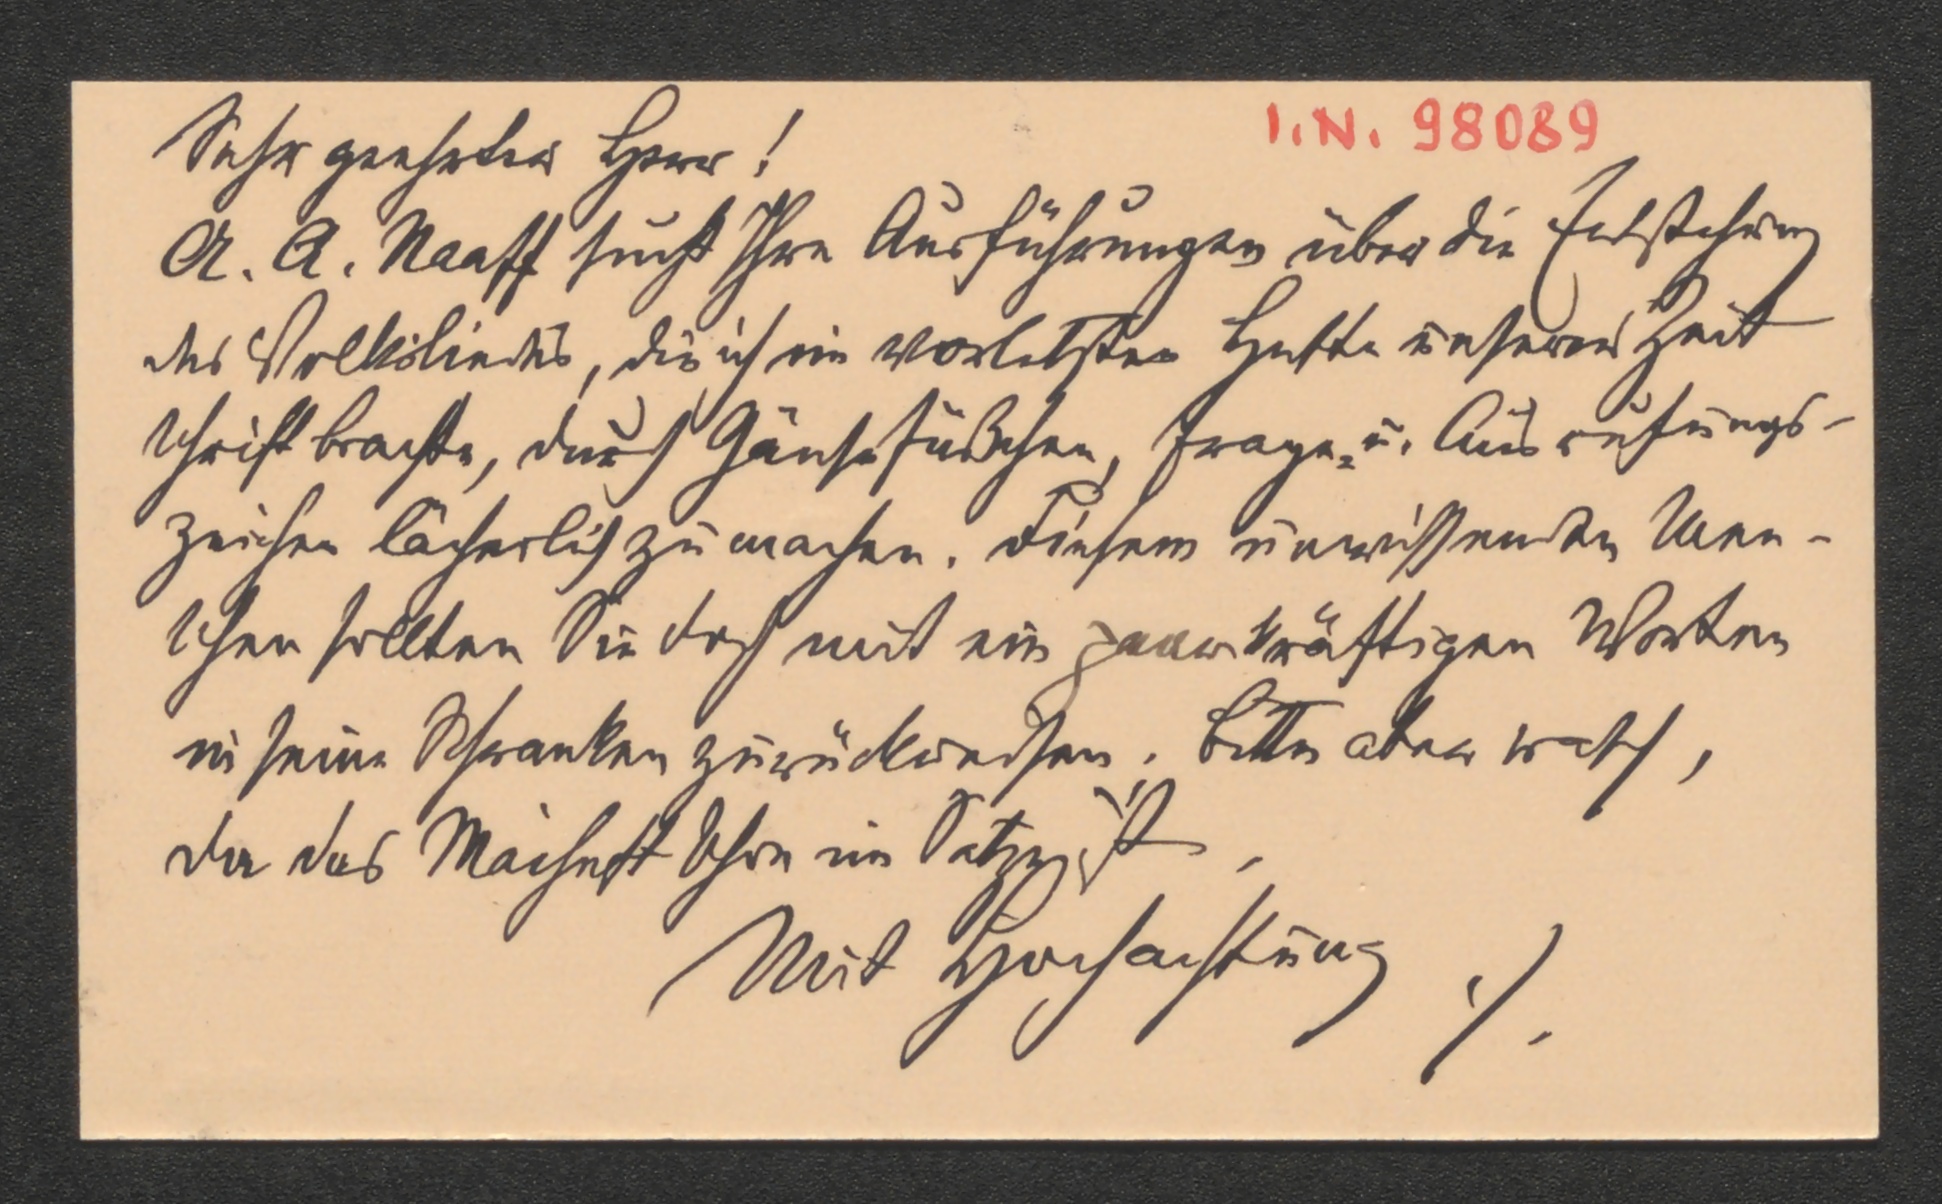 I.N. 98089
Sehr geehrter Herr!
A. A. Naaff sucht Ihre Ausführungen über die Entstehung
des Volksliedes, die ich im vorletzten Hefte unserer Zeit
schrift brachte, durch Gänsefüßchen, Frage- u. Ausrufungs-
zeichen lächerlich zu machen. Diesem unwissenden Men-
schen sollten Sie doch mit ein paar kräftigen Worten
in seine Schranken zurückweisen. Bitte aber rasch,
da das Maiheft schon im Satze ist.
Mit Hochachtung ./.